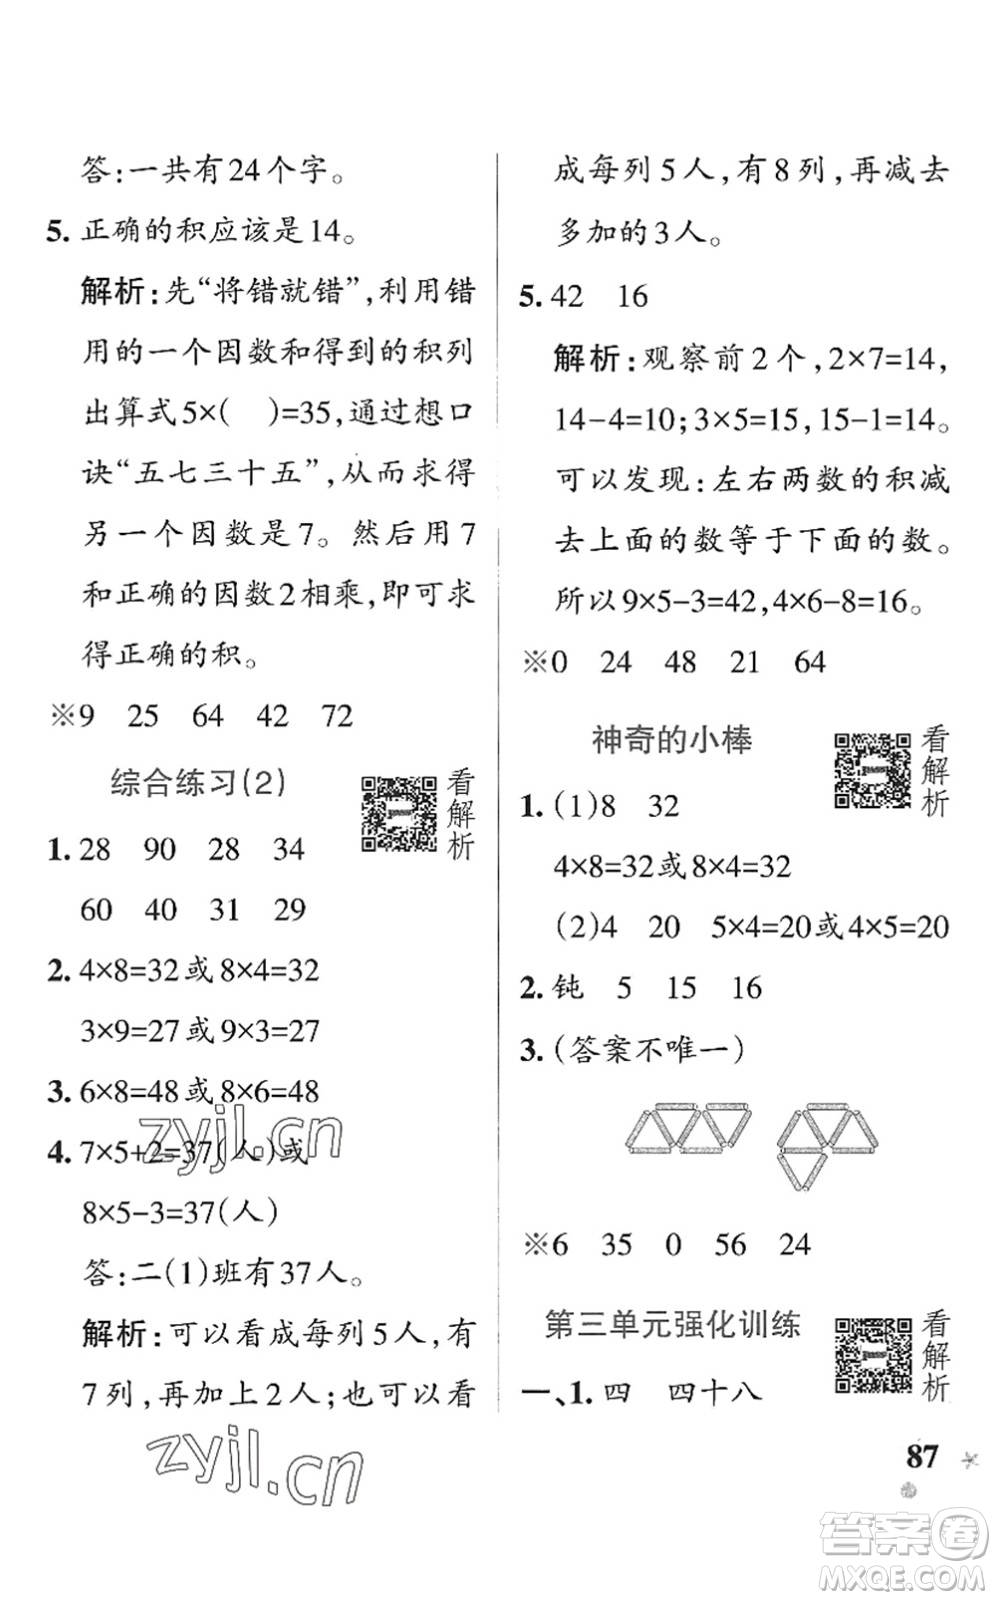 答:一共有24个字。
5. 正确的积应该是14。
解析:先“将错就错”,利用错
用的一个因数和得到的积列
出算式5×(　)=35,通过想口
诀“五七三十五”,从而求得
另一个因数是7。然后用7
和正确的因数2相乘,即可求
得正确的积。
※9 25 64 42 72
综合练习(2)
看解析
1. 28 90 28 34
60 40 31 29
2. 4×8=32或8×4=32
3×9=27或9×3=27
3. 6×8=48或8×6=48
4. 7×5+2=37(人)或
8×5-3=37(人)
答:二(1)班有37人。
解析:可以看成每列5人,有
7列,再加上2人;也可以看
成每列5人,有8列,再减去
多加的3人。
5. 42 16
解析:观察前2个,2×7=14,
14-4=10;3×5=15,15-1=14。
可以发现:左右两数的积减
去上面的数等于下面的数。
所以9×5-3=42,4×6-8=16。
※0 24 48 21 64
神奇的小棒
看解析
1. (1)8 32
4×8=32或8×4=32
(2)4 20 5×4=20或4×5=20
2. 钝 5 15 16
3. (答案不唯一)
※6 35 0 56 24
第三单元强化训练
看解析
一、1. 四 四十八
87
zyjl.cn
zyjl.cn
答案卷
MXQE.COM